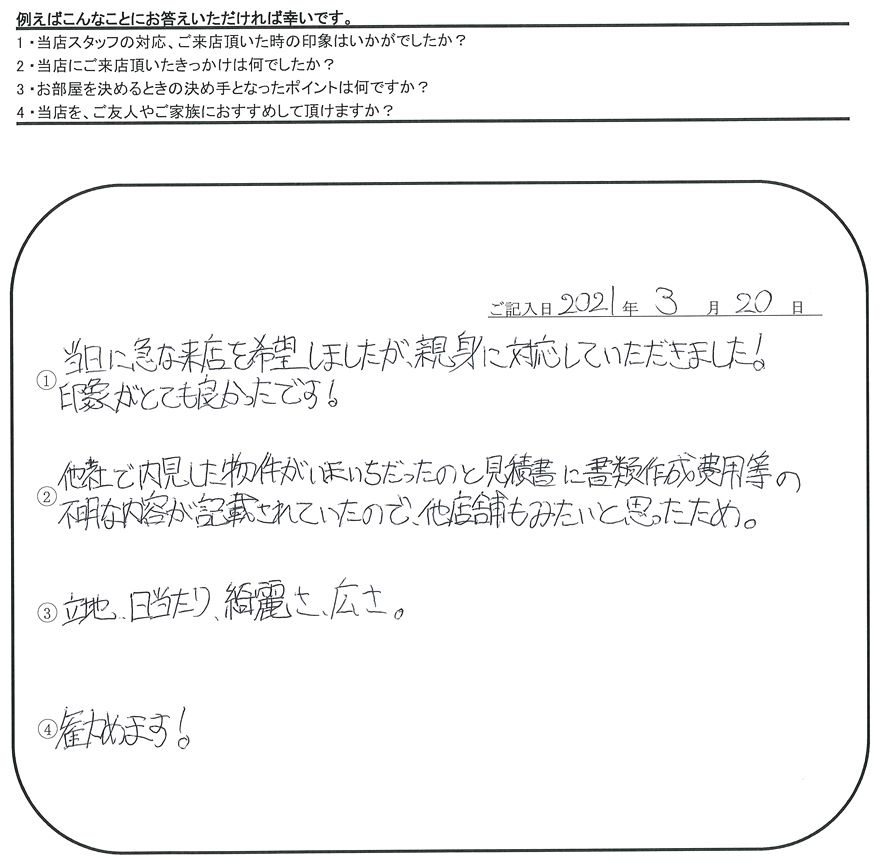 例えばこんなことにお答えいただければ幸いです。
1・当店スタッフの対応、ご来店頂いた時の印象はいかがでしたか？
2・当店にご来店頂いたきっかけは何でしたか？
3・お部屋を決めるときの決め手となったポイントは何ですか？
4・当店を、ご友人やご家族におすすめして頂けますか？
ご記入日 2021 年 3 月 20 日
① 当日に急な来店を希望しましたが、親身に対応していただきました!
印象がとても良かったです!
② 他社で内見した物件がいまいちだったのと見積書に書類作成費用等の
不明な内容が記載されていたので、他店舗もみたいと思ったため。
③ 立地、日当たり、綺麗さ、広さ。
④ 勧めます!